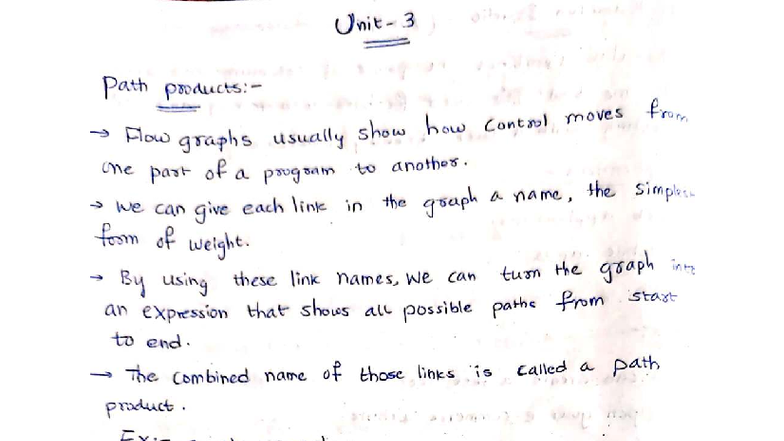 Unit - 3
Path products:-
→ Flow graphs usually show how control moves from
one part of a program to another.
→ We can give each link in the graph a name, the simplest
form of weight.
→ By using these link names, we can turn the graph into
an expression that shows all possible paths from start
to end.
→ The combined name of those links is called a path
product.
Ex:-